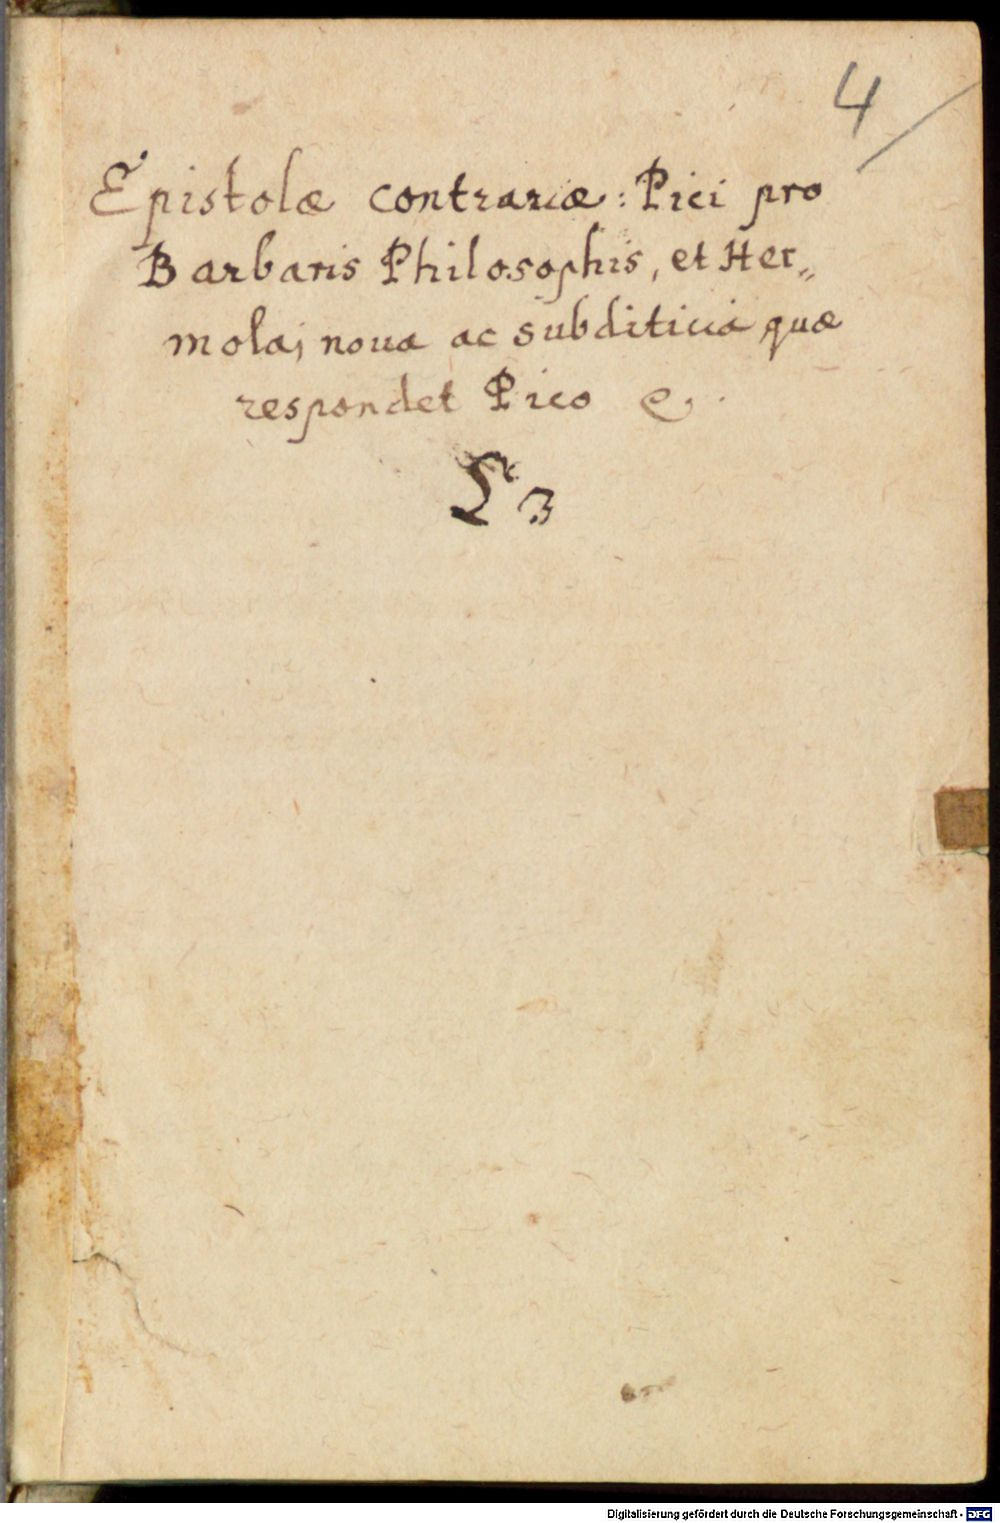 4
Epistolæ contrariæ: Pici pro
Barbaris Philosophis, et Her„
molaj noua ac subditicia quæ
respondet Pico
3
Digitalisierung gefördert durch die Deutsche Forschungsgemeinschaft - DFG